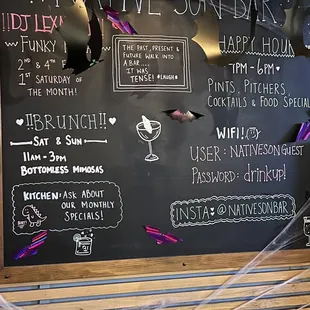 NATIVE SON BAR
!!DJ LEX
FUNKY
2nd & 4
1st SATURDAY OF
THE MONTH!
THE PAST, PRESENT &
FUTURE WALK INTO
A BAR....
IT WAS
TENSE! *LAUGH*
HAPPY HOUR
7PM-6PM
PINTS, PITCHERS,
COCKTAILS & FOOD SPECIAL
!!BRUNCH!!
SAT & SUN
11AM - 3PM
BOTTOMLESS MIMOSAS
WIFI!
USER: NATIVESONGUEST
PASSWORD: drinkup!
KITCHEN: ASK ABOUT
OUR MONTHLY
SPECIALS!
INSTA @NATIVESONBAR